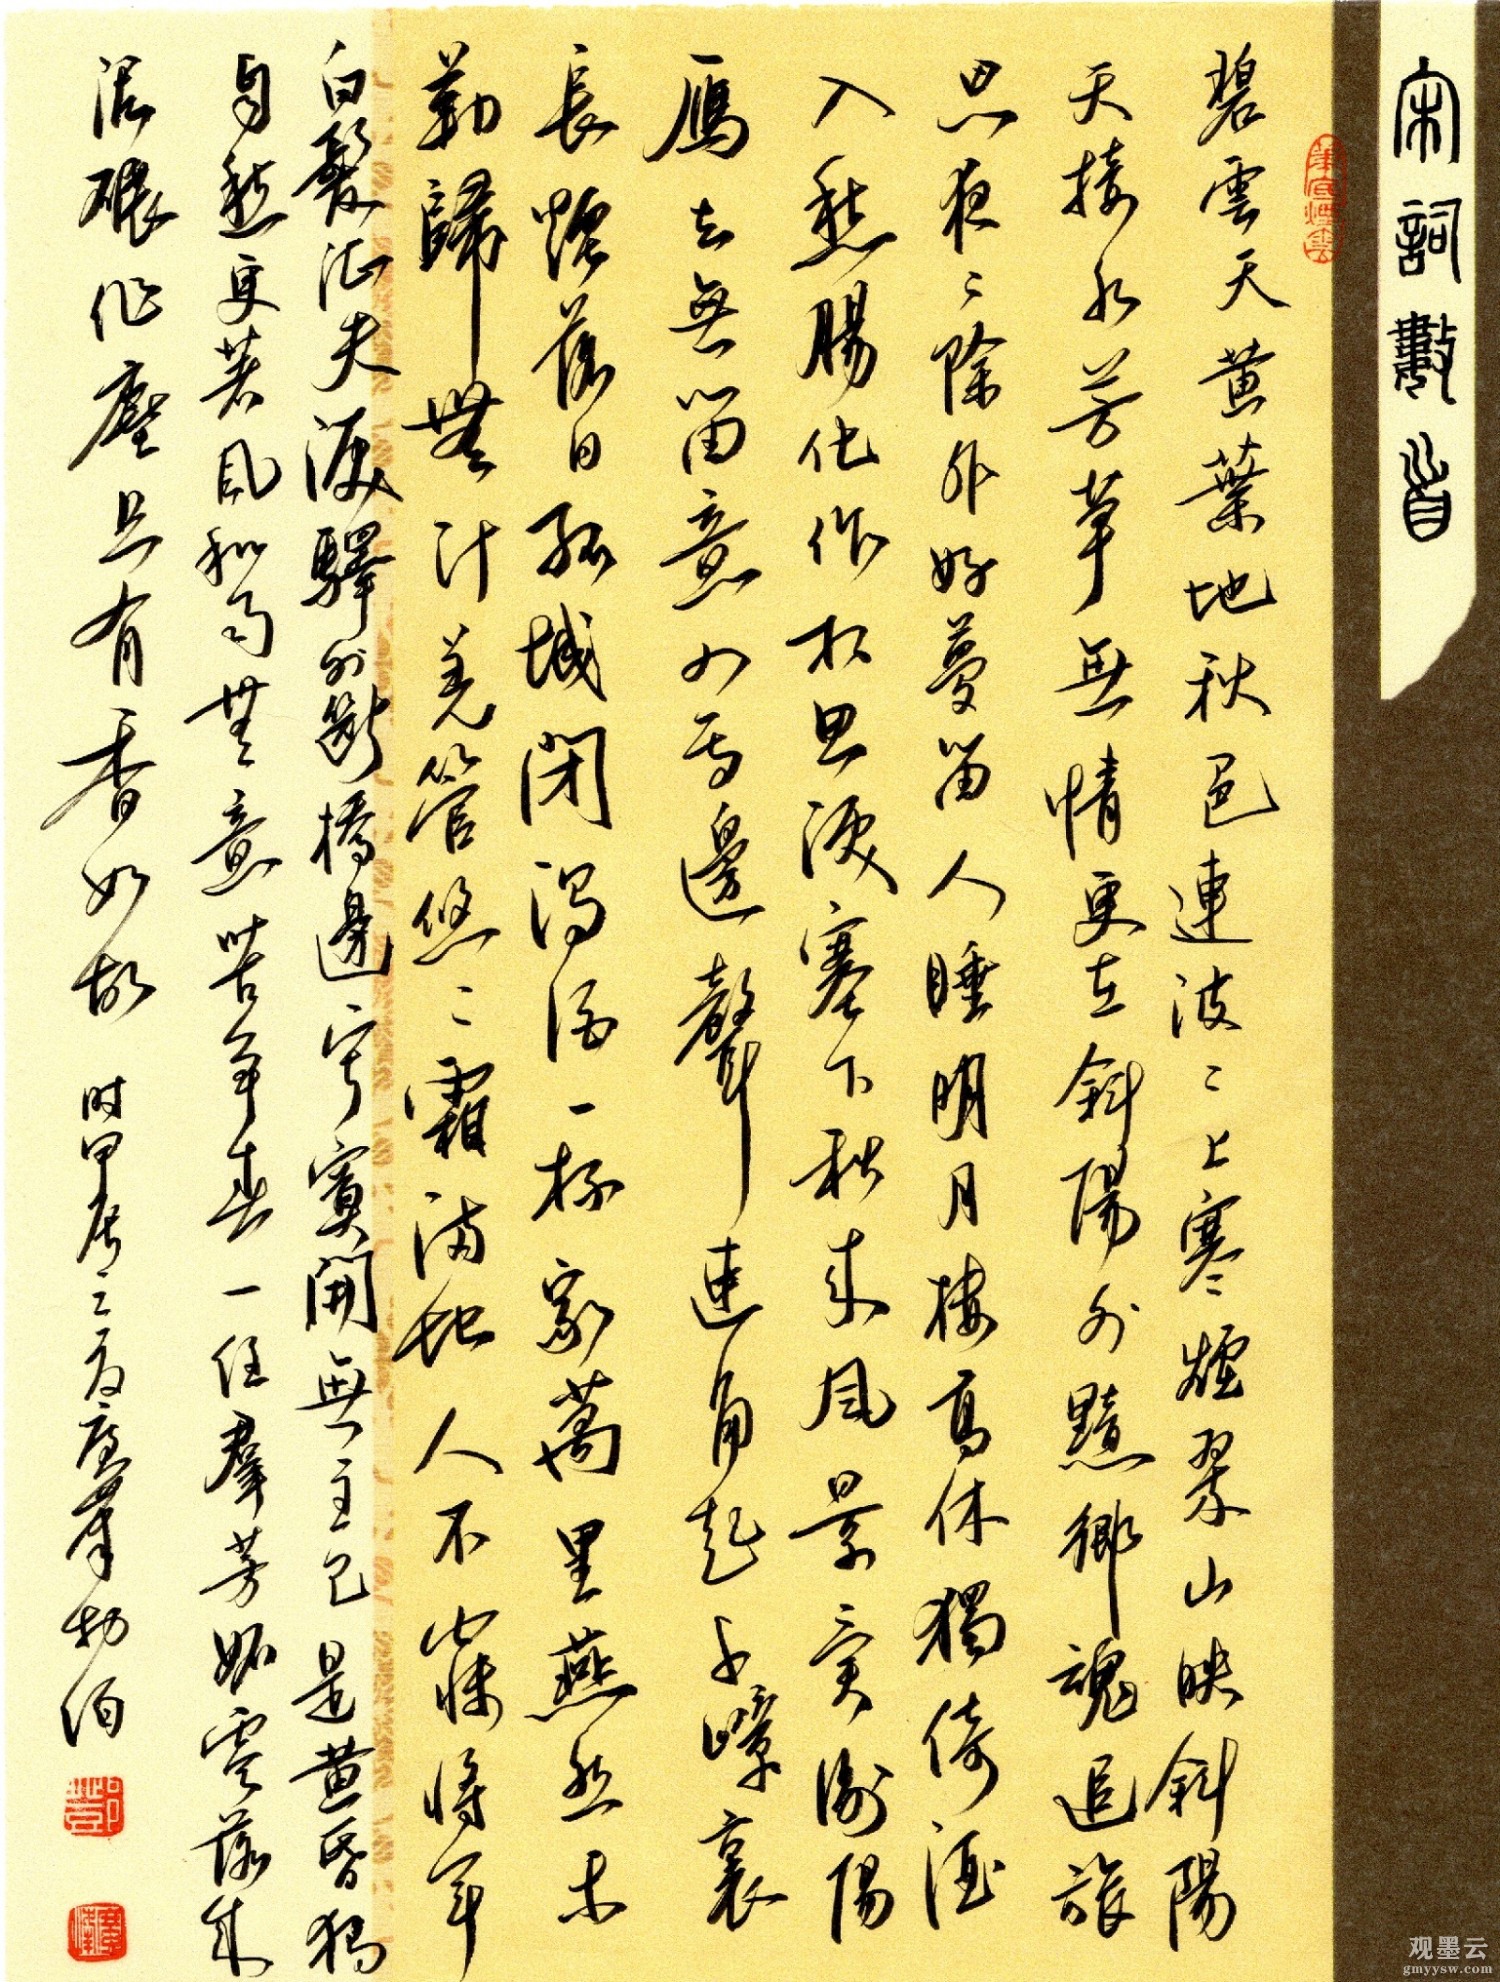 宋詞數首
筆底煙雲
碧雲天黄葉地秋色連波〻上寒煙翠山映斜陽
天接水芳草無情更在斜陽外黯鄉魂追旅
思夜〻除非好夢留人睡明月樓高休獨倚酒
入愁腸化作相思淚塞下秋來風景異衡陽
雁去無留意四面邊聲連角起千嶂裏
長煙落日孤城閉濁酒一杯家萬里燕然未
勒歸無計羌管悠〻霜滿地人不寐將軍
白髮征夫淚驛外斷橋邊寂寞開無主已是黄昏獨
自愁更著風和雨無意苦爭春一任羣芳妒零落成
泥碾作塵只有香如故 时甲辰之夏
观墨云
gmyysw.com